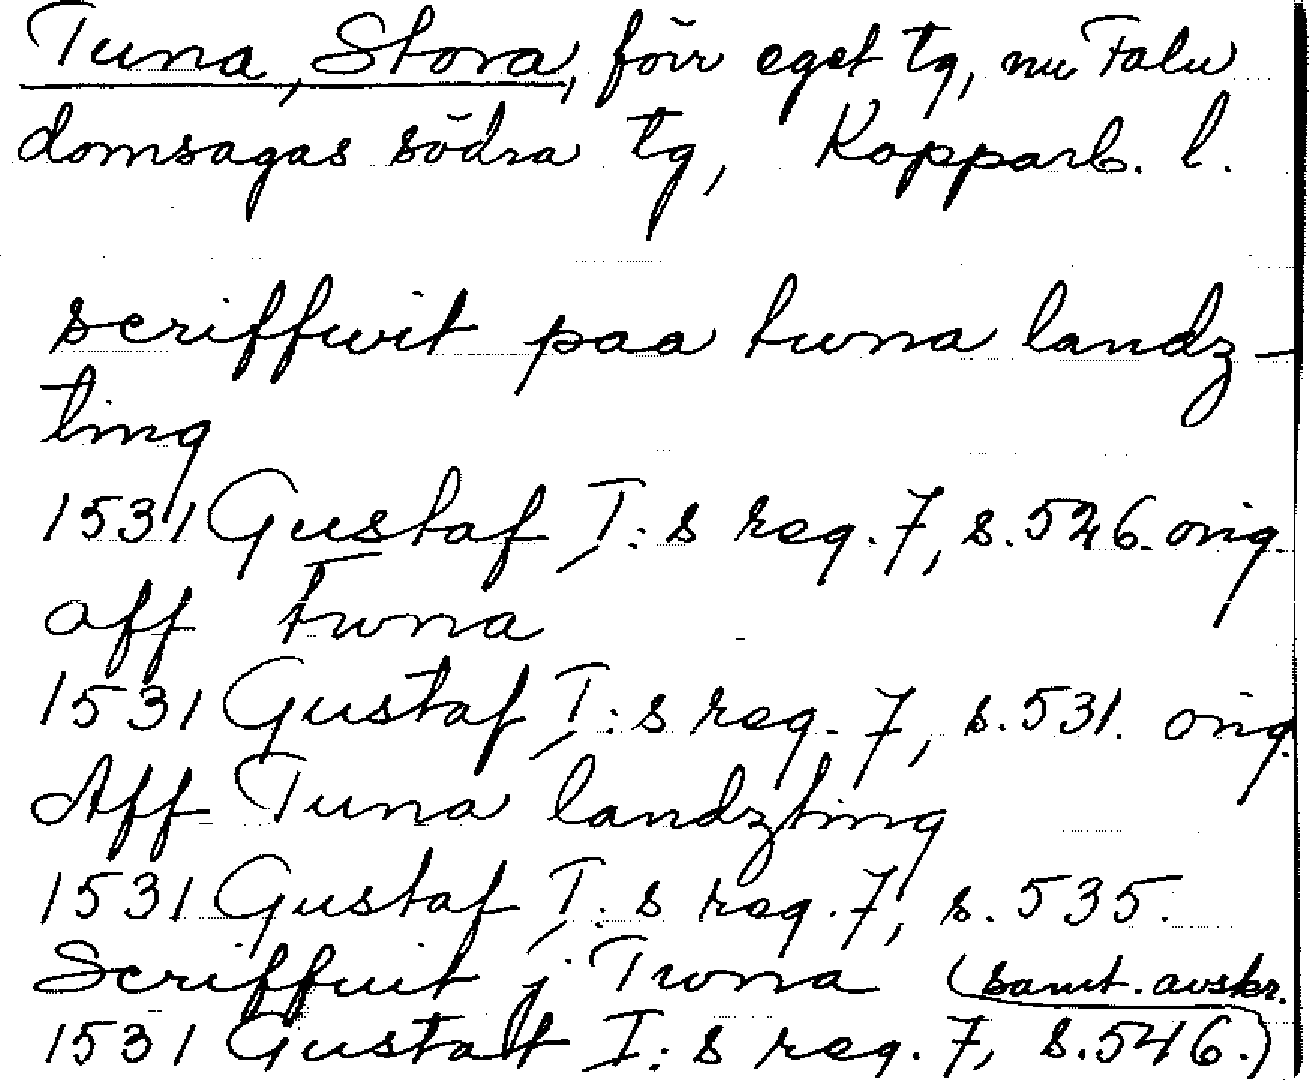 Tuna, Stora, förr eget tg, nu Falu
domsagas södra tg, Kopparb. l.
scriffwit paa twna landz-
ting
1531 Gustaf I:s reg. 7, s. 526 orig
aff twna
1531 Gustaf I:s reg. 7, s. 531. orig.
Aff Tuna landzting
1531 Gustaf I:s reg. 7, s. 535.
Scriffuit j Twna (samt. avskr.
1531 Gustaf I:s reg. 7, s. 546.)